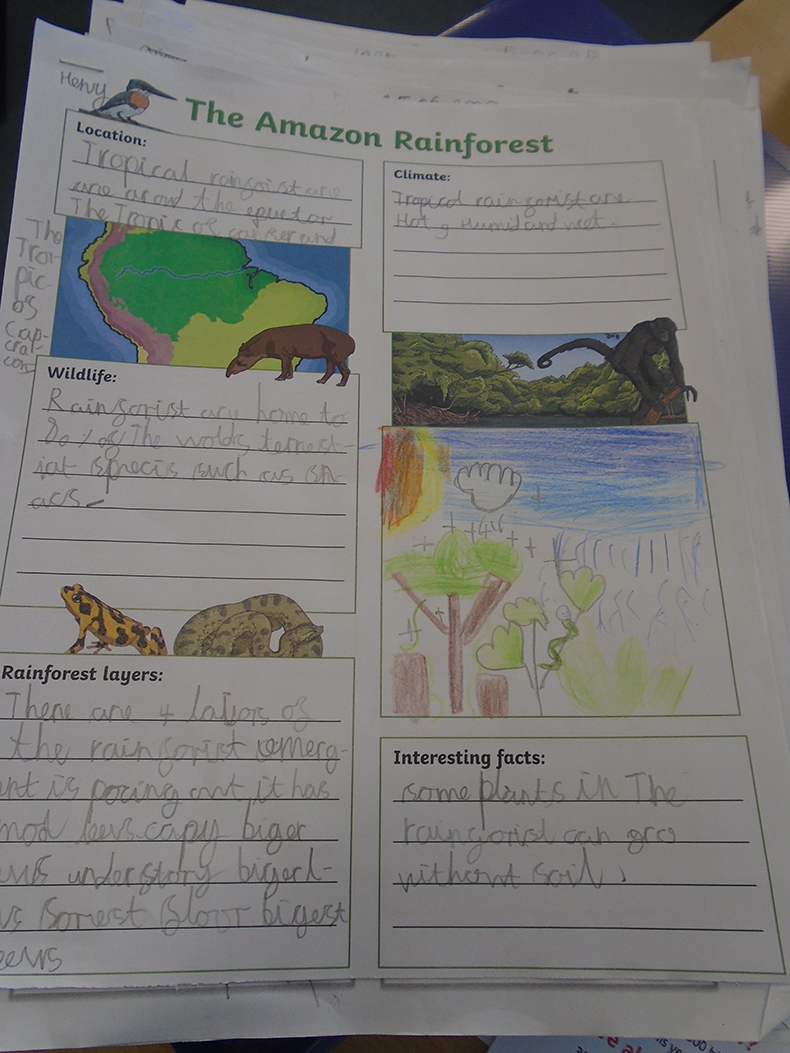 Henry
The Amazon Rainforest
Location:
Tropical raingorist are
are aroud the equator
The Tropic of canser and
The
Tror
pic-
os
Cap-
cral-
con
Climate:
Tropical raingorist are
Hot, Humid and wet.
Wildlife:
Raingorist are home to
80% of The wolds terrest-
ial species such as sn-
acs
Rainforest layers:
There are 4 laiyors of
the raingorist emerg-
ent is pocing out it has
mod leevs capy biger
leevs understory bigerl-
vs Forrest floor bigest
eevs
Interesting facts:
some plants in The
raingorist can gro
without soil.